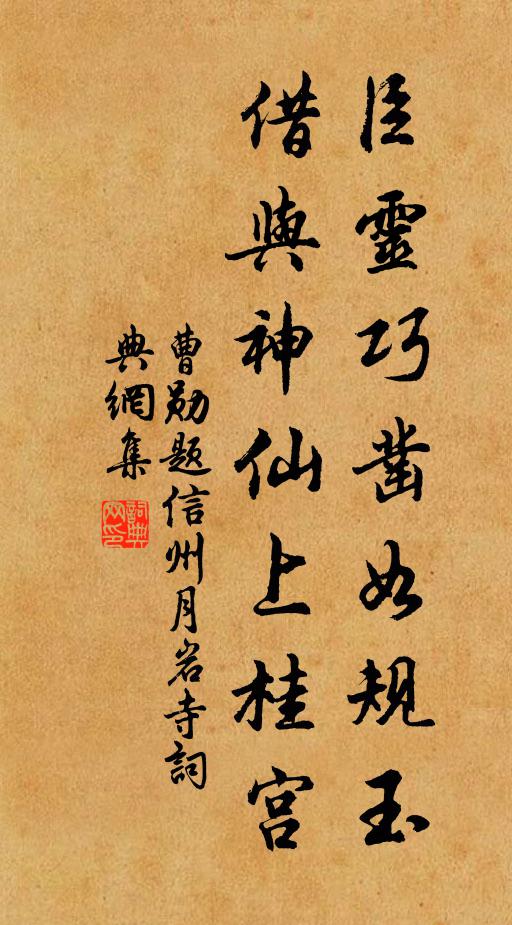 臣靈巧鑿如規玉
借與神仙上桂宮
曹勛題信州月岩寺詞
典網集
詞典網印